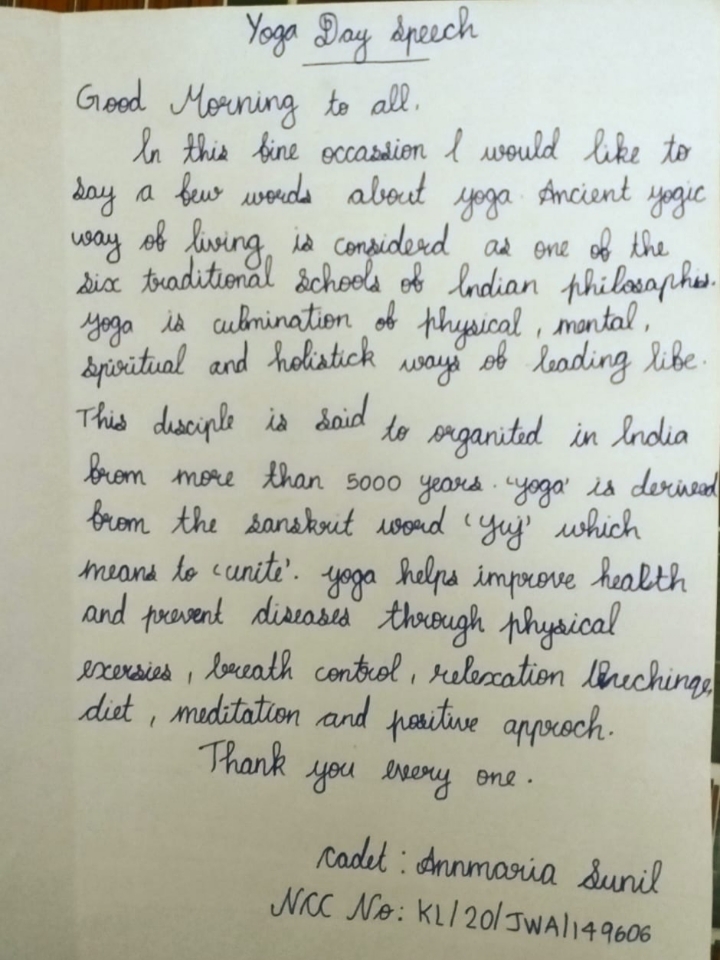 Yoga Day Speech
Good Morning to all.
In this fine occassion I would like to
say a few words about yoga. Ancient yogic
way of living is considerd as one of the
six traditional schools of Indian philosaphis.
Yoga is culmination of physical, mental,
spiritual and holistick ways of leading life.
This disciple is said to organited in India
from more than 5000 years. 'Yoga' is derived
from the sanskrit word 'Yuj' which
means to 'unite'. Yoga helps improve health
and prevent diseases through physical
exersies, breath control, relexation
diet, meditation and positive approch.
Thank you every one.
Cadet : Annmaria Sunil
NCC No: KL/20/JWA/149606